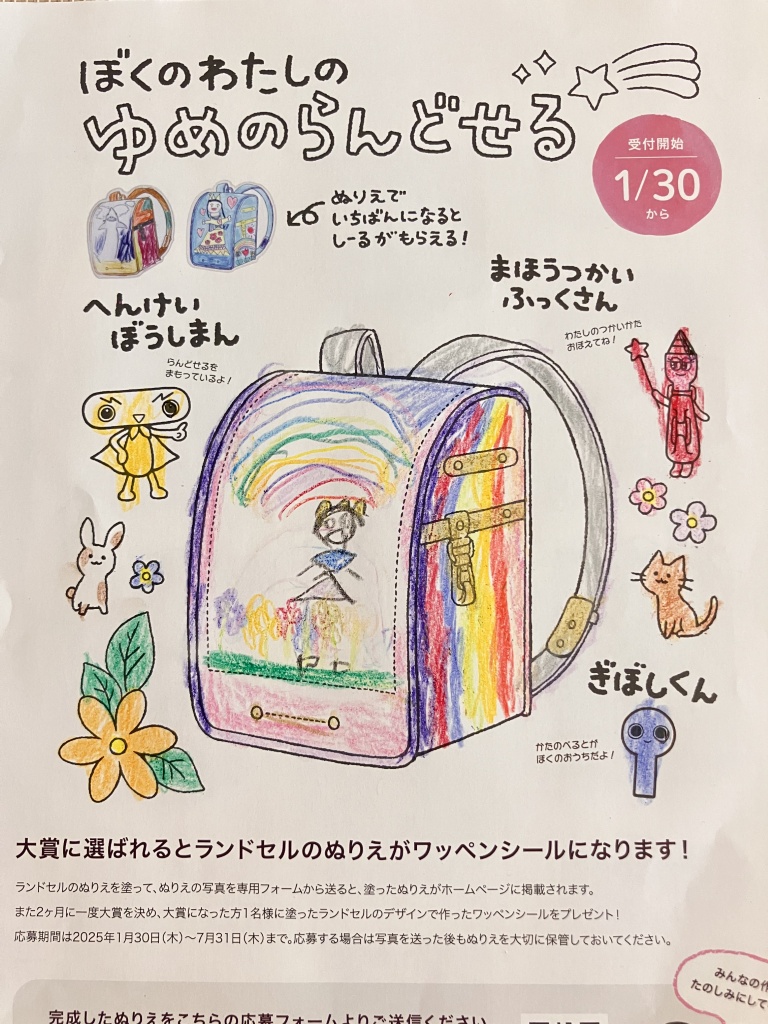 ぼくのわたしの
ゆめのらんどせる
受付開始
1/30
から
ぬりえで
いちばんになると
しーるがもらえる!
まほうつかい
ふっくさん
わたしのつかいかた
おぼえてね!
へんけい
ぼうしまん
らんどせるを
まもっているよ!
ぎぼしくん
かたのべるとが
ぼくのおうちだよ!
大賞に選ばれるとランドセルのぬりえがワッペンシールになります!
ランドセルのぬりえを塗って、ぬりえの写真を専用フォームから送ると、塗ったぬりえがホームページに掲載されます。
また2ヶ月に一度大賞を決め、大賞になった方1名様に塗ったランドセルのデザインで作ったワッペンシールをプレゼント!
応募期間は2025年1月30日(木)〜7月31日(木)まで。応募する場合は写真を送った後もぬりえを大切に保管しておいてください。
みんなの作
たのしみにして
完成したぬりえをこちらの応募フォームよりご送信ください